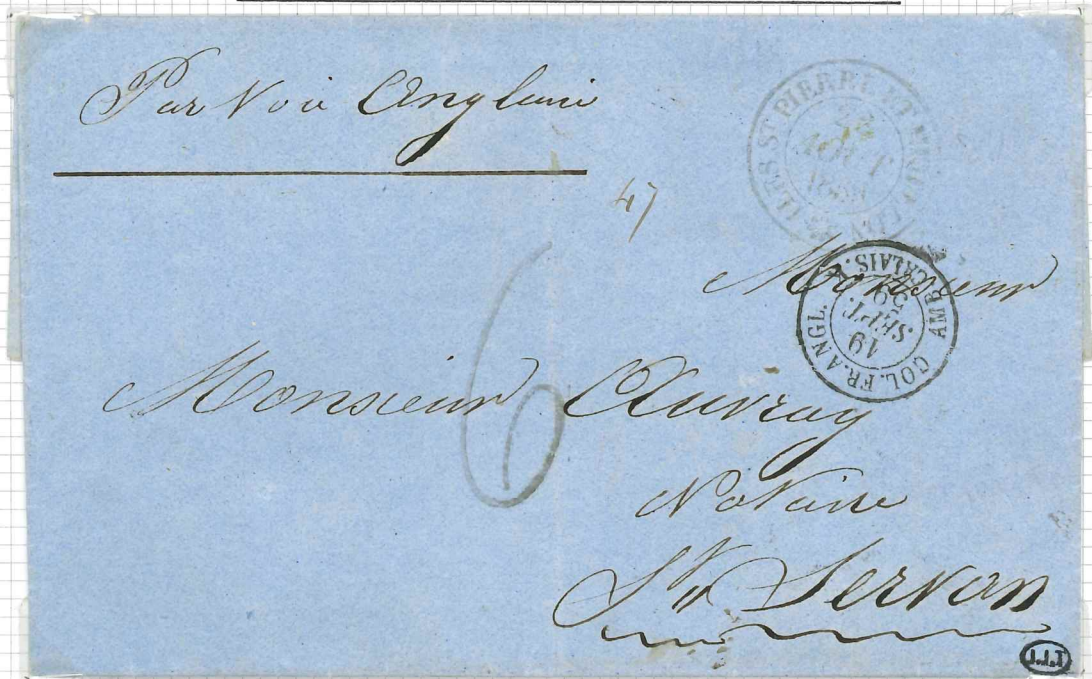 Par Voie Anglaise
ILES ST PIERRE ET MIQUELON
AOUT
47
COL. FR. ANGL. AMB. CALAIS.
19
SEPT.
59
Monsieur
6
Monsieur Auvray
Notaire
St Servan
J.L.T